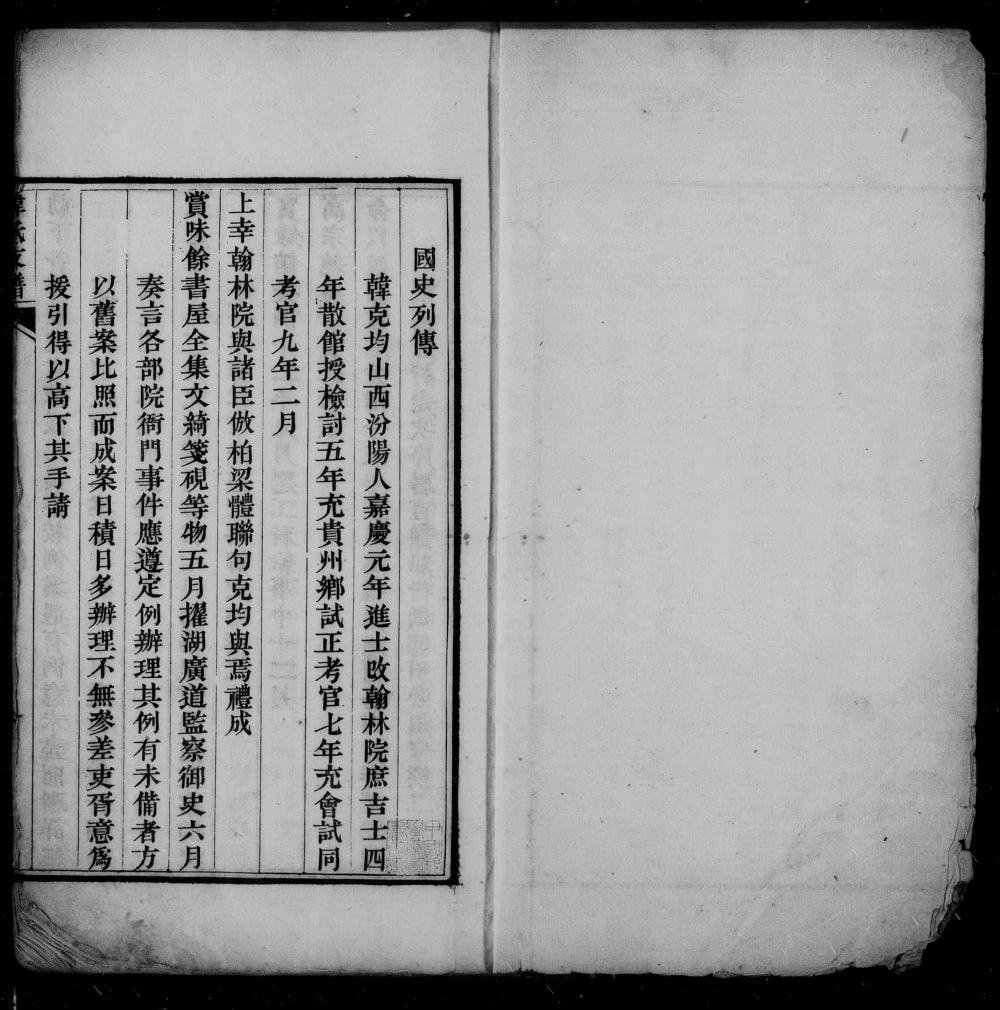 國史列傳
韓克均山西汾陽人嘉慶元年進士改翰林院庶吉士四
年散館授檢討五年充貴州鄉試正考官七年充會試同
考官九年二月
上幸翰林院與諸臣倣柏梁體聯句克均與焉禮成
賞味餘書屋全集文綺箋硯等物五月擢湖廣道監察御史六月
奏言各部院衙門事件應遵定例辦理其例有未備者方
以舊案比照而成案日積日多辦理不無參差吏胥意爲
援引得以高下其手請
韓氏支譜